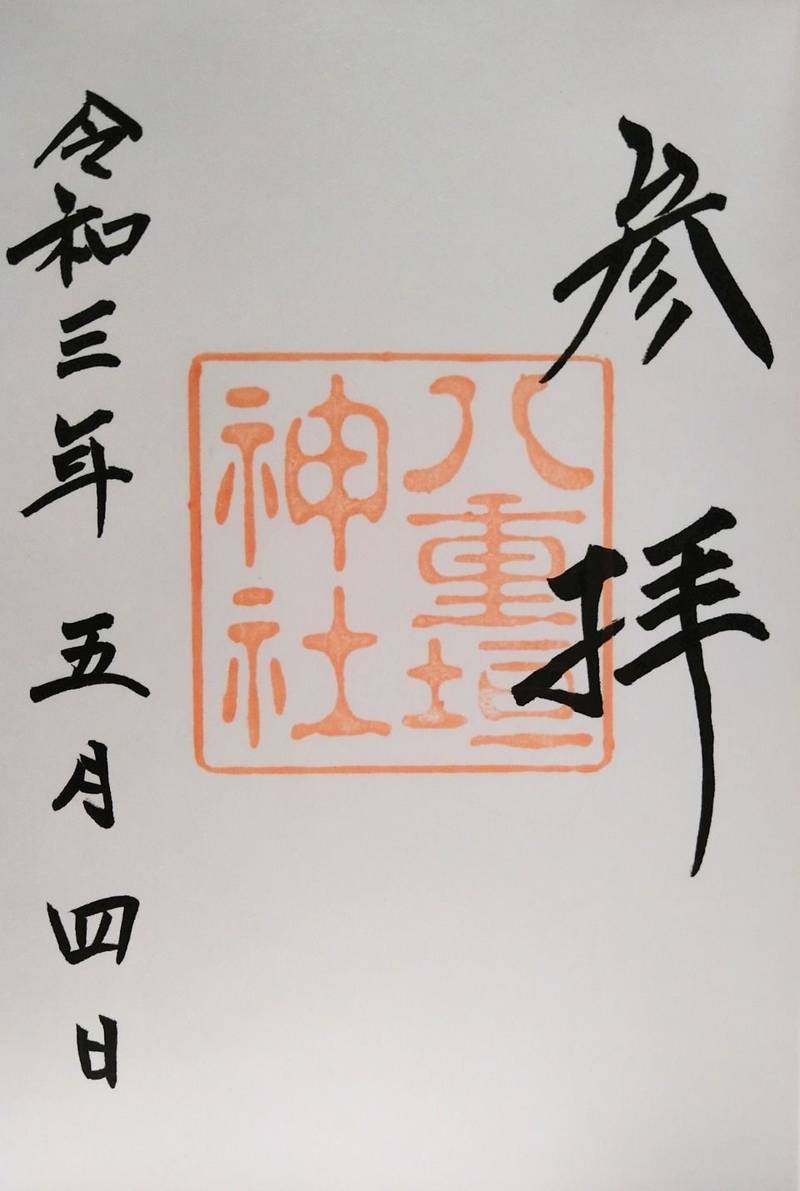 参拝
八重垣
神社
令和三年 五月 四日